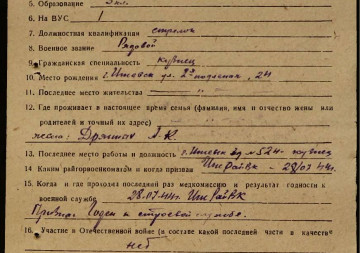 5. Образование 3 кл.
6. На ВУС 1
7. Должностная квалификация стрелок
8. Военное звание Рядовой
9. Гражданская специальность кузнец
10. Место рождения г. Ижевск ул. 24
11. Последнее место жительства
12. Где проживает в настоящее время семья (фамилия, имя и отчество жены или
родителей и точный их адрес)
жена:
13. Последнее место работы и должность г. Ижевск № 524 кузнец
14. Каким райгорвоенкоматом и когда призван 28/07 44г.
15. Когда и где проходил последний раз медкомиссию и результат годности к
военной службе 28.07.44г.
Годен к строевой службе.
16. Участие в Отечественной войне (в составе какой последней части в качеств
нет